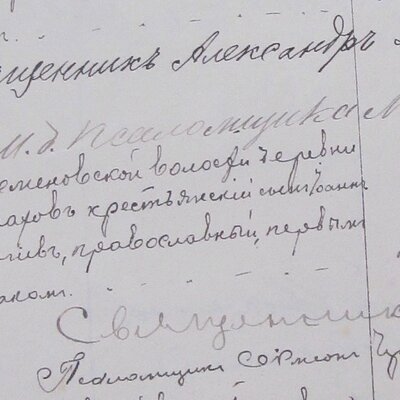 щенникъ Александръ
И. д. Псаломщика М
еменовской волости деревни
аховъ крестьянскій сынъ Іоаннъ
іевъ, православный, первымъ
акомъ.
Священник
Псаломщикъ